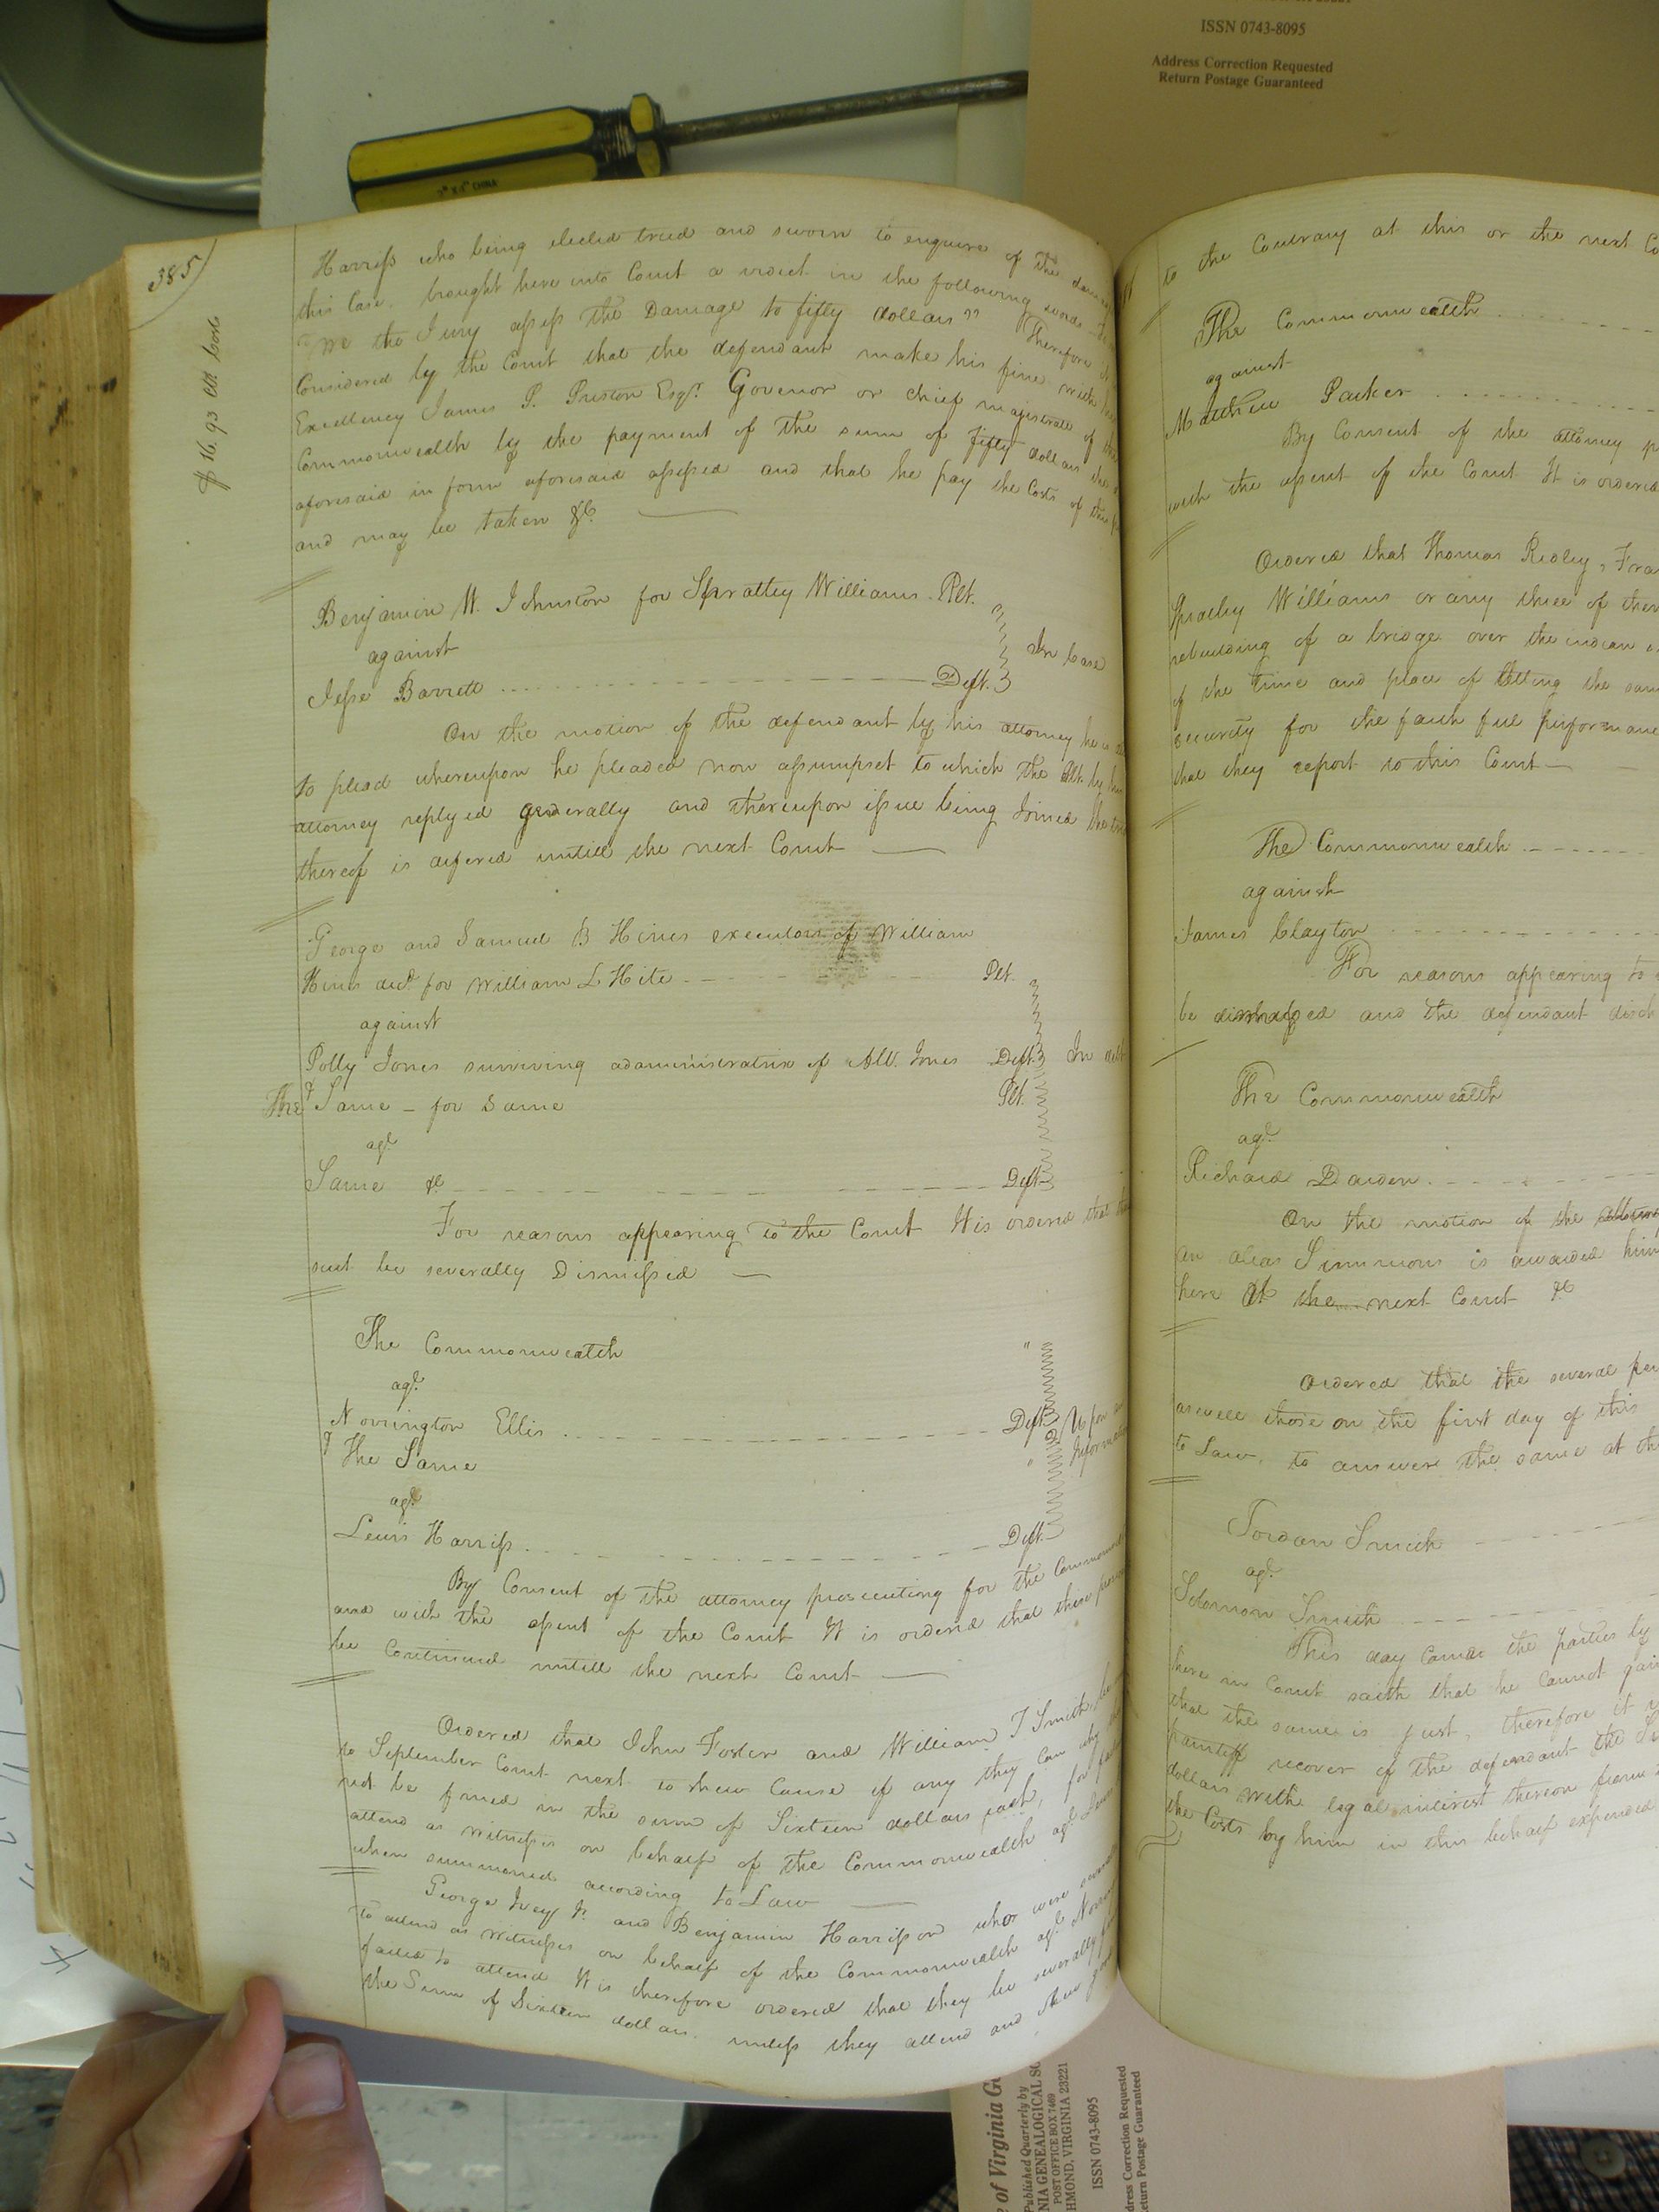 ISSN 0743-8095
Address Correction Requested
Return Postage Guaranteed
CHINA
385
$16.93 cts costs
Harriss who being elected tried and sworn to enquire of the
this Case. brought here into Court a virdict in the following words
"We the Jury assess the Damage to fifty dollars" Therefore it
Considered by the Court that the defendant make his fine with
Excellency James P. Preston Esqr. Governor or chief majistrate of
Commonwealth by the payment of the sum of fifty dollars the
aforesaid in form aforesaid assessed and that he pay the Costs of this
and may be taken &c.
Benjamin W. Johnston for Spratley Williams. Plt.
against
In Case
Jesse Barrett Deft.
On the motion of the defendant by his attorney he is
to plead whereupon he pleaded non assumpset to which the Plt. by his
attorney replyed generally and thereupon issue being Joined the
thereof is defered untill the next Court
George and Samuel B Hines executors of William
Hines decd. for William L Hite Plt.
against
Polly Jones surviving administratrix of Alb. Jones Deft. In
The Same - for Same Plt.
agt.
Same &c Deft.
For reasons appearing to the Court It is ordered that
suit be severally Dismissed
The Commonwealth
agt.
Norrington Ellis Deft. Upon an
& The Same
agt.
Lewis Harriss Deft.
By Consent of the attorney prosecuting for the
and with the assent of the Court It is ordered that these
be Continued untill the next Court
Ordered that John Foster and William T Smith be
to September Court next to shew Cause if any they Can why
not be fined in the sum of Sixteen dollars each, for
attend as witnesses on behalf of the Commonwealth agt.
when summoned according to Law
George Ivey Jr. and Benjamin Harrison who were
to attend as witnesses on behalf of the Commonwealth agt.
failed to attend It is therefore ordered that they be severally
the Sum of Sixteen dollars. unless they attend and shew
to the Contrary at this or the next
The Commonwealth
against
Matthew Parker
By Consent of the attorney
with the assent of the Court It is ordered
Ordered that Thomas Ridley,
Spratley Williams or any three of them
rebuilding of a bridge over the indian
of the time and place of letting the same
security for the faith full performance
that they report to this Court
The Commonwealth
against
James Clayton
For reasons appearing to
be discharged and the defendant
The Commonwealth
agt.
Richard Darden
On the motion of the attorney
an alias Summons is awarded him
here At the next Court &c
Ordered that the several
as well those on the first day of this
to Law, to answere the same at the
Jordan Smith
agt.
Solomon Smith
This day Came the parties by
here in Court saith that he Cannot
that the same is just, therefore it
plaintiff recover of the defendant the
dollars with legal interest thereon from
the Costs by him in this behalf expended
of Virginia
Published Quarterly by
GENEALOGICAL
POST OFFICE BOX 7469
VIRGINIA 23221
ISSN 0743-8095
Address Correction Requested
Return Postage Guaranteed